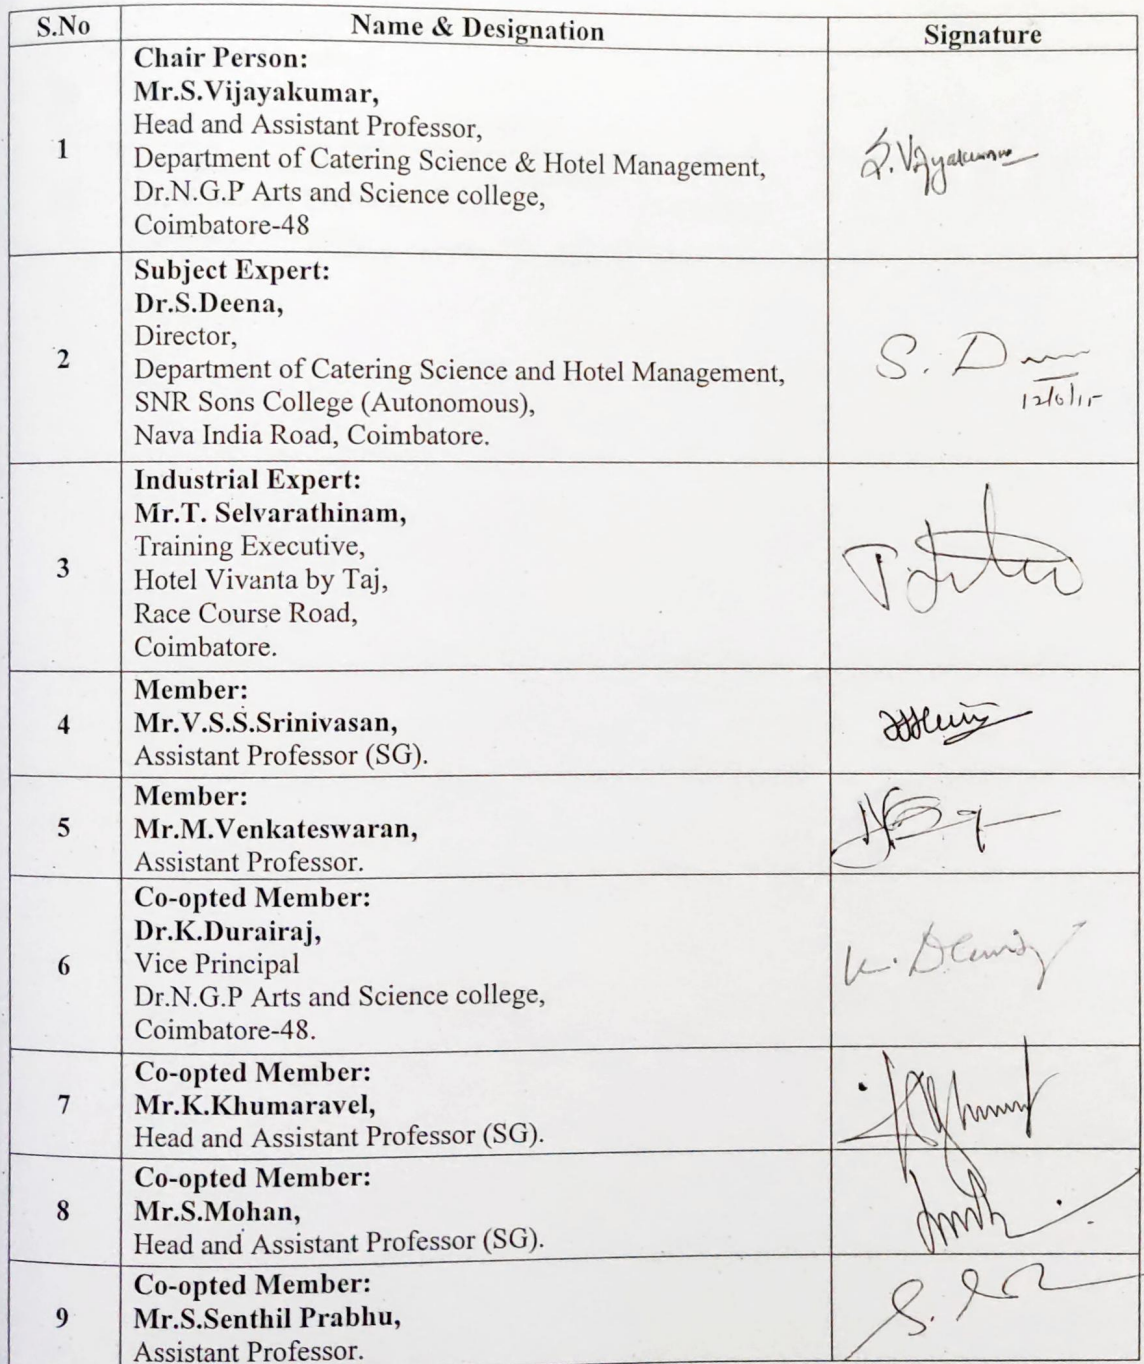 S.No Name & Designation Signature
Chair Person:
Mr.S.Vijayakumar,
Head and Assistant Professor,
1 Department of Catering Science & Hotel Management, S. Vijayakumar
Dr.N.G.P Arts and Science college,
Coimbatore-48
Subject Expert:
Dr.S.Deena,
Director,
2 Department of Catering Science and Hotel Management, S. D
SNR Sons College (Autonomous),
Nava India Road, Coimbatore.
Industrial Expert:
Mr.T. Selvarathinam,
Training Executive,
3 Hotel Vivanta by Taj,
Race Course Road,
Coimbatore.
Member:
4 Mr.V.S.S.Srinivasan,
Assistant Professor (SG).
Member:
5 Mr.M.Venkateswaran,
Assistant Professor.
Co-opted Member:
Dr.K.Durairaj,
6 Vice Principal
Dr.N.G.P Arts and Science college,
Coimbatore-48.
Co-opted Member:
7 Mr.K.Khumaravel,
Head and Assistant Professor (SG).
Co-opted Member:
8 Mr.S.Mohan,
Head and Assistant Professor (SG).
Co-opted Member:
9 Mr.S.Senthil Prabhu,
Assistant Professor.